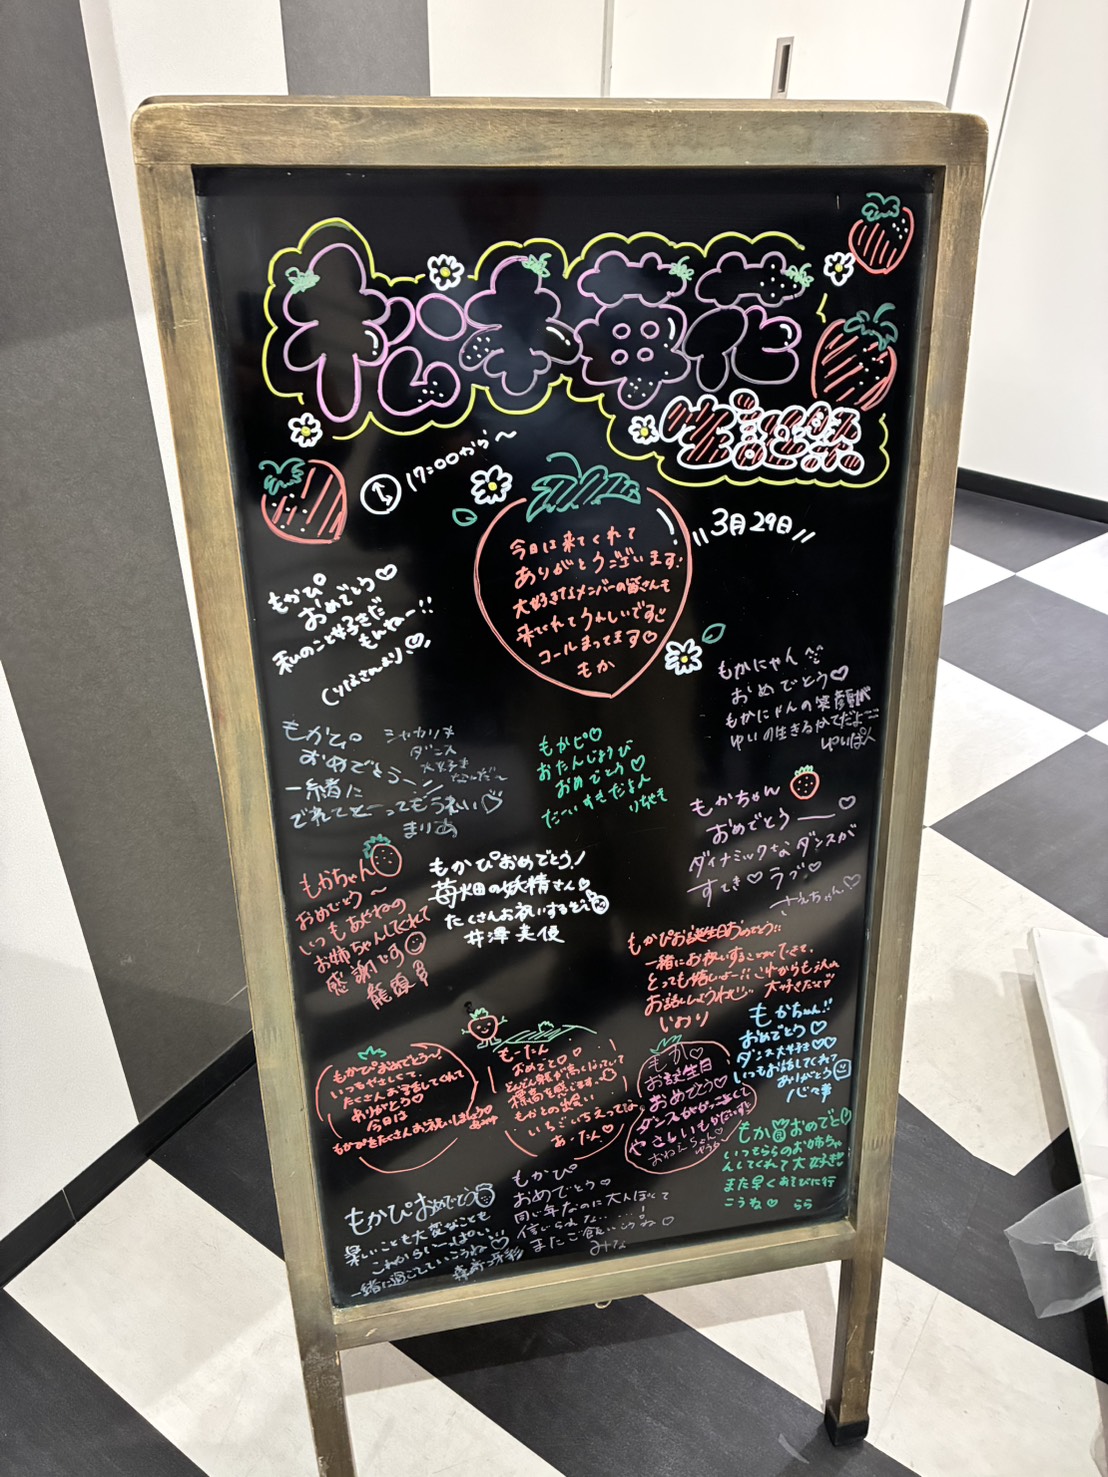 松本苺花
生誕祭
17:00から〜
3月29日
今日は来てくれて
ありがとうございます!
大好きなメンバーの皆さんも
来てくれてうれしいです
コールまってます♡
もか
もかぴ
おめでとう♡
私のこと好きだ
もんねー!!
くりはさんより♡
もかにゃん
おめでとう♡
もかにゃんの笑顔が
ゆいの生きるかてだよ
ゆいぱん
もかぴ
おめでとう〜
一緒に
でれてとーってもうれしい♡
まりあ
シャカリキ
ダンス
大好き
なんだ〜
もかピ♡
おたんじょうび
おめでとう♡
だーいすきだよん
りちゃも
もかちゃん
おめでとうー♡
ダイナミックなダンスが
すてき♡ラブ♡
さえちゃん♡
もかちゃん
おめでとう〜
いつもあやねの
お姉ちゃんしてくれて
感謝です
もかぴおめでとう!
苺畑の妖精さん♡
たくさんお祝いするぞー
井澤美優
もかぴお誕生日おめでとう!!
一緒にお祝いすることができて、
とっても嬉しいよー!!これからもたくさん
お話ししようね 大好きだよ♡
いのり
もかちゃん!!
おめでとう♡
ダンス大好き♡♡
いつもお話してくれて
ありがとう
心華
もかぴおめでとう〜!
いつもやさしくて、
たくさんお話してくれて
ありがとう♡
今日は
もかぴをたくさんお祝いしましょう♡
もーたん
おめでと♡♡
どんどん鼻が高くなっていて
標高を感じます
もかとの出会い
いちごいちえってな
あーたん♡
もか♡
お誕生日
おめでとう♡
ダンスがかっこよくて
やさしいもかだいすき
おねえちゃん
ゆうら
もかぴおめでとう♡
いつもららのお姉ちゃ
んしてくれて大好き♡
また早くあそびに行
こうね♡ らら
もかぴおめでとう
楽しいことも大変なことも
これからいーっぱい
一緒に過ごしていこうね♡
もかぴ
おめでとう♡
同じ年なのに大人ぽくて
信じられな……!
またご飯いこうね♡
みな